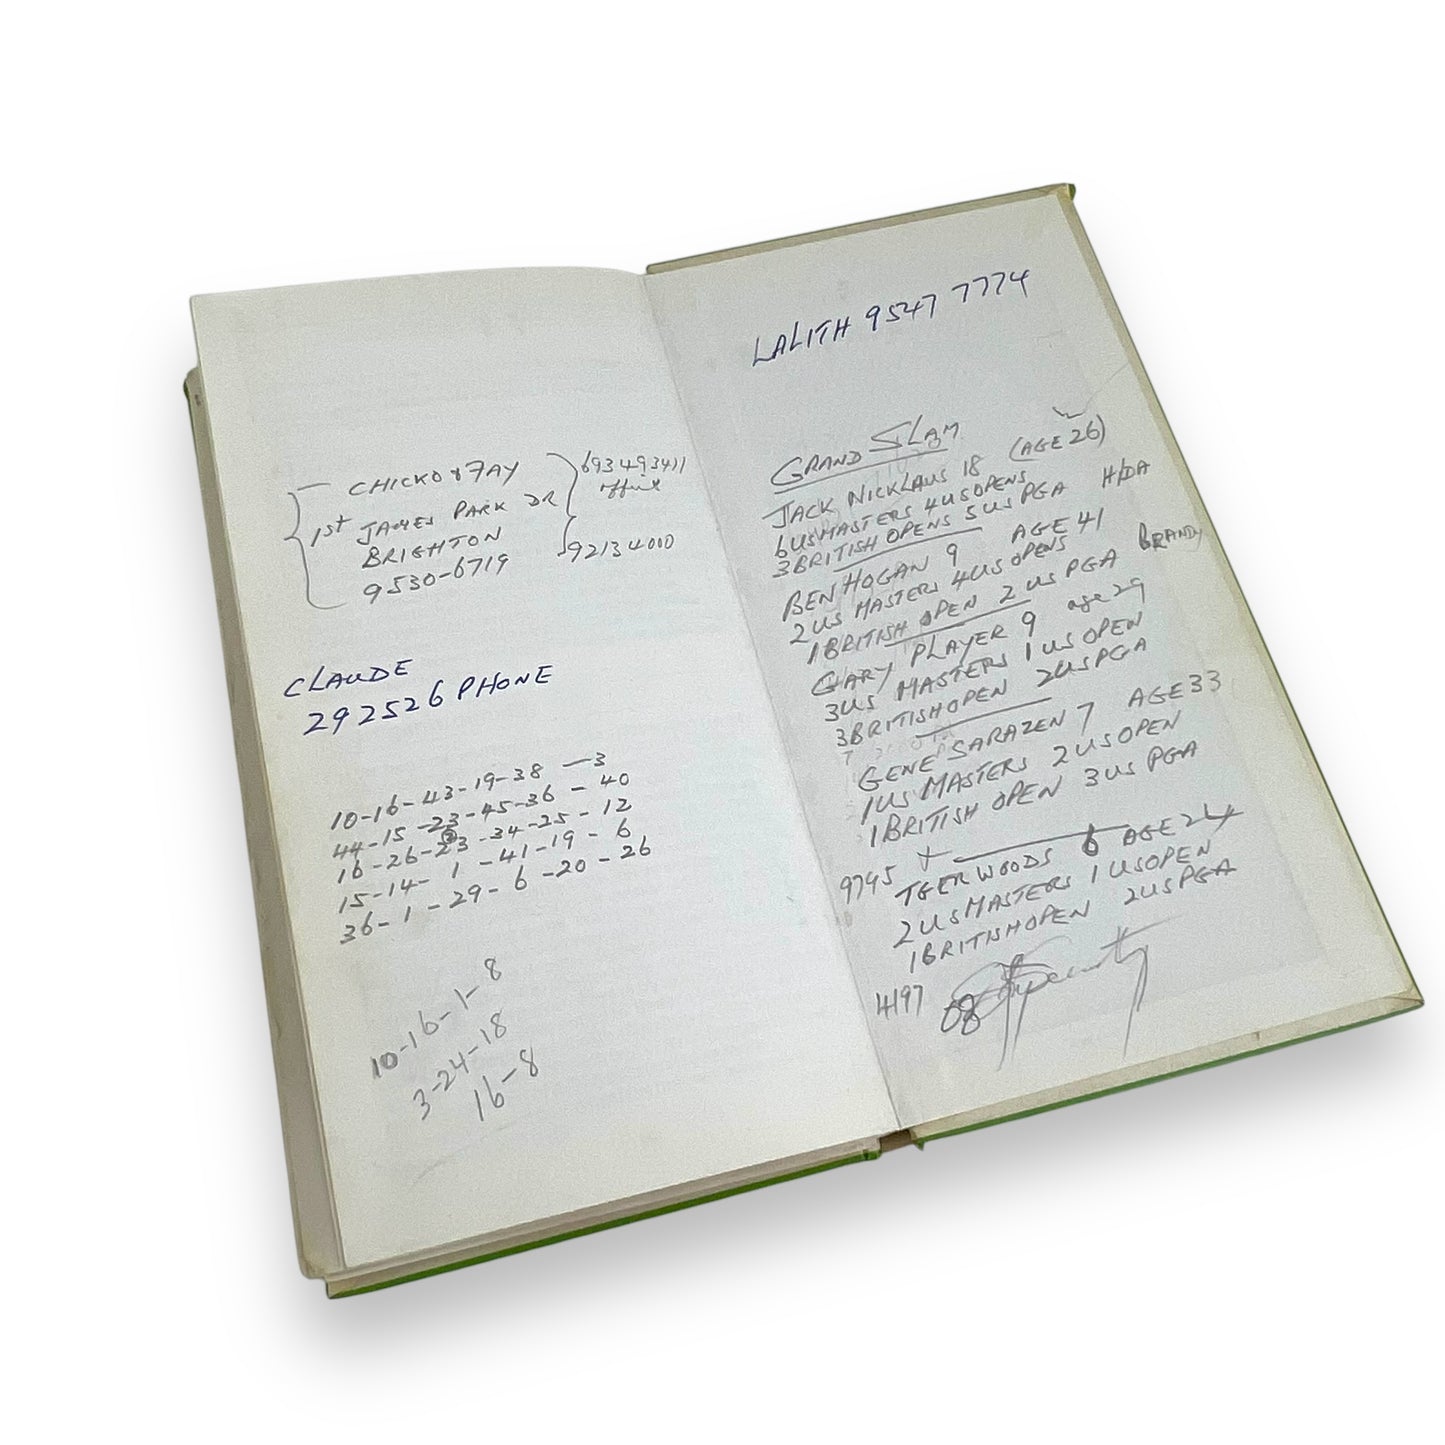 CHICKO & FAY
1st JAMES PARK DR
BRIGHTON
9530-6719
693493411
office
92134000
CLAUDE
292526 PHONE
10-16-43-19-38 - 3
44-15-23-45-36 - 40
16-26-23-34-25-12
15-14-1-41-19-6
36-1-29-6-20-26
10-16-1-8
3-24-18
16-8
LALITH 9547 7774
GRAND SLAM
JACK NICKLAUS 18 (AGE 26)
6 US MASTERS 4 US OPENS
3 BRITISH OPENS 5 US PGA
BEN HOGAN 9 AGE 41
2 US MASTERS 4 US OPENS BRANDY
1 BRITISH OPEN 2 US PGA
GARY PLAYER 9 age 29
3 US MASTERS 1 US OPEN
3 BRITISH OPEN 2 US PGA
GENE SARAZEN 7 AGE 33
1 US MASTERS 2 US OPEN
1 BRITISH OPEN 3 US PGA
9745
TGER WOODS 6 AGE 24
2 US MASTERS 1 US OPEN
1 BRITISH OPEN 2 US PGA
4197 08